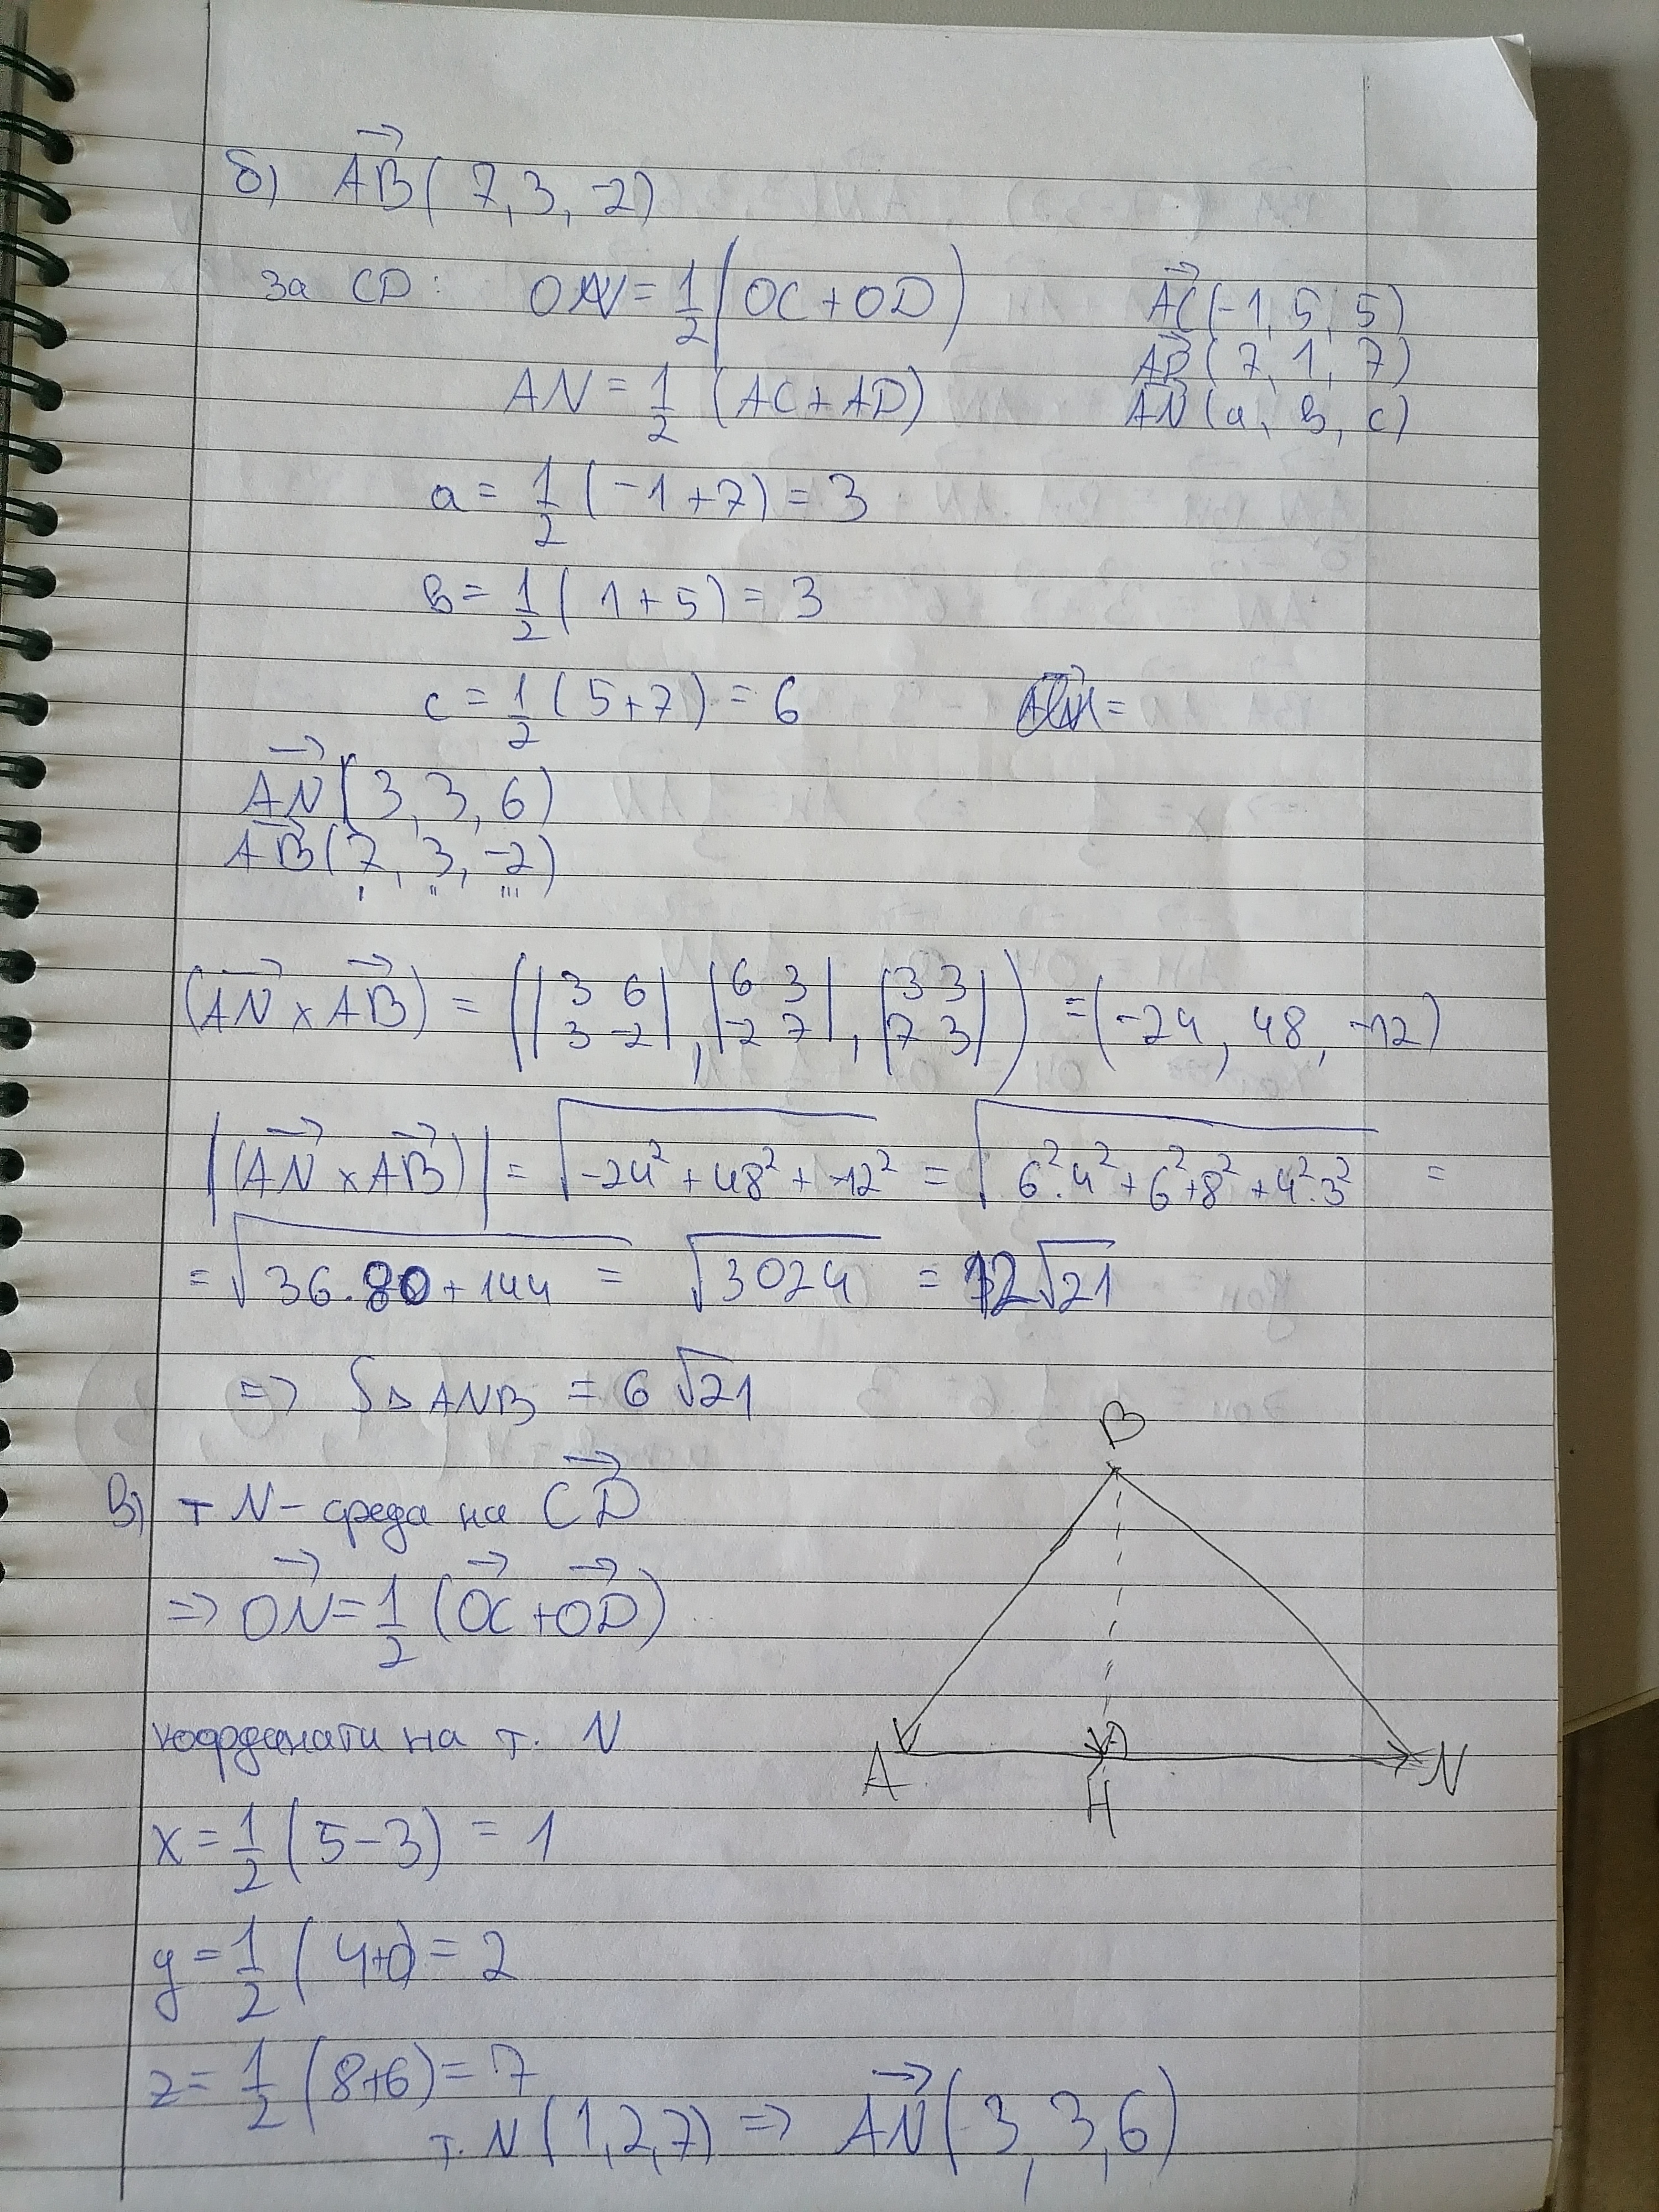 б) AB→ ( 7, 3, -2)
за CD: ON = 1/2 (OC + OD)
AC→ (-1, 5, 5)
AN = 1/2 (AC + AD)
AD→ (7, 1, 7)
AN→ (a, в, c)
a = 1/2 (-1 + 7) = 3
в = 1/2 (1 + 5) = 3
c = 1/2 (5+7) = 6
AN→ (3, 3, 6)
AB→ (7, 3, -2)
(AN→ x AB→) = (|3 6; 3 -2|, |6 3; -2 7|, |3 3; 7 3|) = (-24, 48, -12)
|(AN→ x AB→)| = √(-24² + 48² + -12²) = √(6².4² + 6²+8² + 4².3²) =
= √(36.80 + 144) = √3024 = 12√21
=> S△ANB = 6√21
B
в) т N - среда на CD→
=> ON→ = 1/2 (OC→ + OD→)
координати на т. N
A H N
x = 1/2 (5-3) = 1
y = 1/2 (4+0) = 2
z = 1/2 (8+6) = 7
т. N (1,2,7) => AN→ (3, 3, 6)